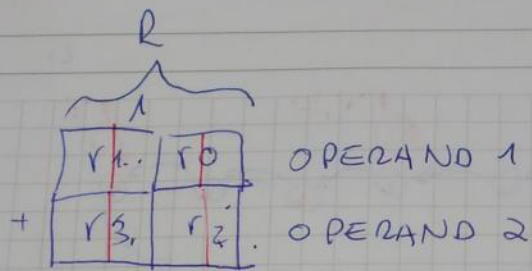 R
1
r1.. r0 OPERAND 1
+ r3. r2. OPERAND 2